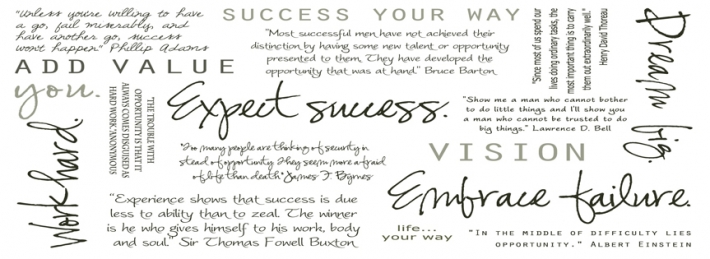 "Unless you're willing to have
a go, fail miserably, and
have another go, success
won't happen." Phillip Adams
SUCCESS YOUR WAY
"Most successful men have not achieved their
distinction by having some new talent or opportunity
presented to them. They have developed the
opportunity that was at hand." Bruce Barton
"Since most of us spend our
lives doing ordinary tasks, the
most important thing is to carry
them out extraordinarily well."
Henry David Thoreau
Dream big.
ADD VALUE
you.
Work hard.
"THE TROUBLE WITH
OPPORTUNITY IS THAT IT
ALWAYS COMES DISGUISED AS
HARD WORK." ANONYMOUS
Expect success.
"Show me a man who cannot bother
to do little things and I'll show you
a man who cannot be trusted to do
big things." Lawrence D. Bell
"Too many people are thinking of security in
stead of opportunity. They seem more afraid
of life than death" James F. Byrnes
VISION
Embrace failure.
"Experience shows that success is due
less to ability than to zeal. The winner
is he who gives himself to his work, body
and soul." Sir Thomas Fowell Buxton
life...
your way
"IN THE MIDDLE OF DIFFICULTY LIES
OPPORTUNITY." ALBERT EINSTEIN